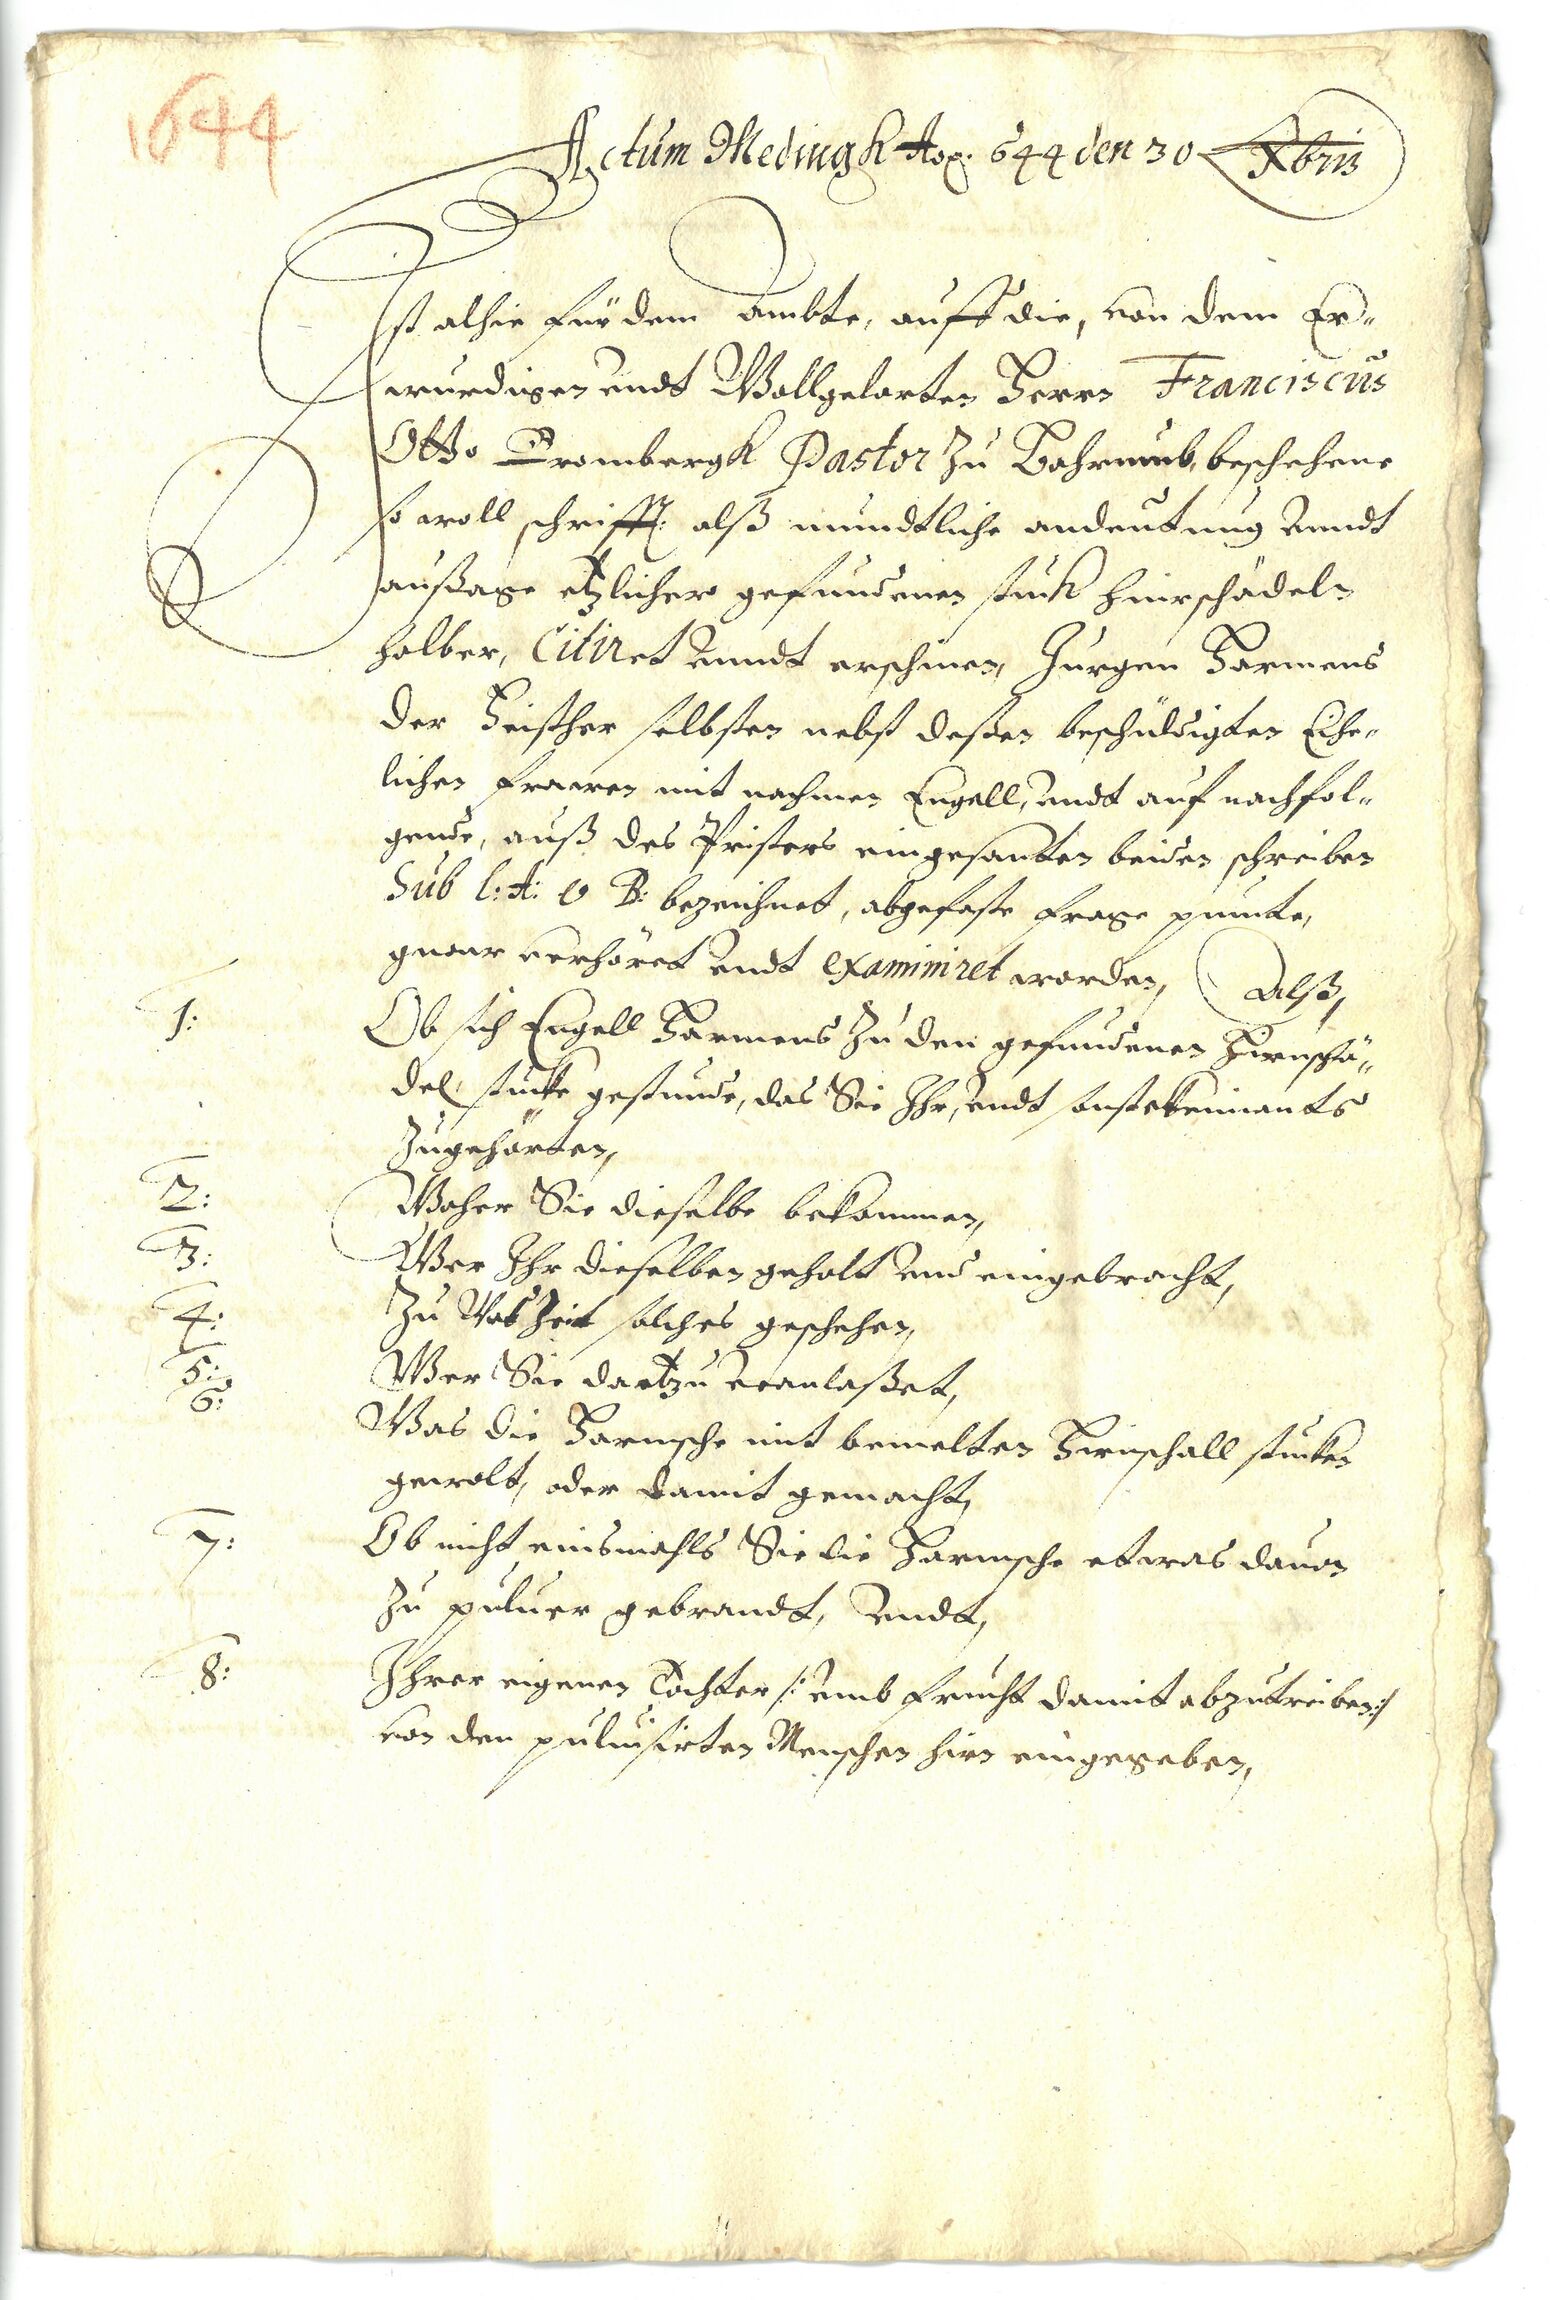 1644
Actum Medingk Ao. 644 den 30 Xbris
Ist alhie für dem Ambte, auff die, von dem Er-
wurdigen undt Wollgelarten Herrn Franciscus
Otto Crombergk Pastor zu beschehene
so woll schrifftl: alß mundtliche andeutung vnndt
außage etzlicher gefundenen stuck hirrschädeln
halber, Citiret vnndt erschinen, Jurgen Harmens
der selbsten nebst deßen beschüldigten Ehe-
lichen frawen mit nahmen Engell, vndt auf nachfol-
gende, auß des Pristers eingesanten beiden schreiben
Sub l: A: et B: bezeichnet, abgefaste frage puncte,
gnaw verhöret vndt examiniret worden, Alß,
1: Ob sich Engell Harmens zu den gefundenen Hirnschä-
del stucke gestunde, das Sie Ihr, vndt sonst keimants
zugehörten,
2: Woher Sie dieselbe bekommen,
3: Wer Ihr dieselben geholt vnd eingebracht,
4: Zu Was Zeit solches geschehen,
5: Wer Sie dartzu veranlaßet,
6: Was die Harmsche mit bemelten Hirnschall stucken
gewolt, oder damit gemacht,
7: Ob nicht einsmahls Sie die Harmsche etwas dauon
zu puluer gebrandt, vndt,
8: Ihrer eigenen Tochter /: vmb frucht damit abzutreiben :/
von den puluisirten Menschen hirn eingegeben,